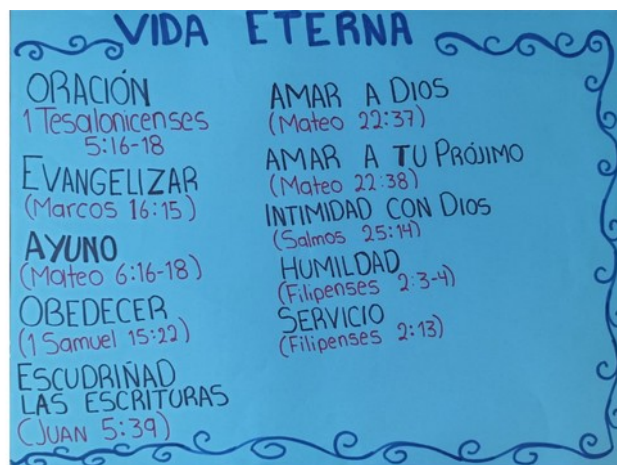 VIDA ETERNA
ORACIÓN
1 Tesalonicenses
5:16-18
EVANGELIZAR
(Marcos 16:15)
AYUNO
(Mateo 6:16-18)
OBEDECER
(1 Samuel 15:22)
ESCUDRIÑAD
LAS ESCRITURAS
(JUAN 5:39)
AMAR A DIOS
(Mateo 22:37)
AMAR A TU PRÓJIMO
(Mateo 22:38)
INTIMIDAD CON DIOS
(Salmos 25:14)
HUMILDAD
(Filipenses 2:3-4)
SERVICIO
(Filipenses 2:13)